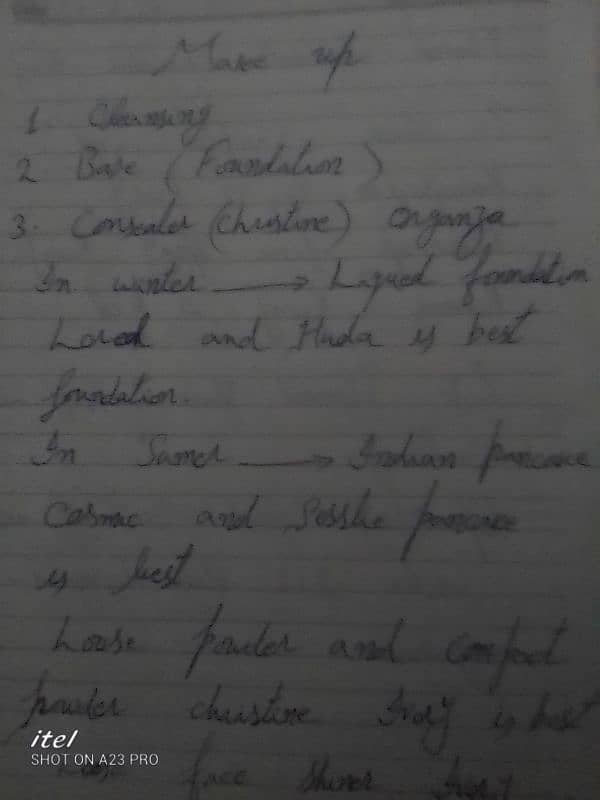 Make up
1 Cleansing
2 Base (Foundation)
3. Consealer (Christine) Organza
In winter → Liqued foundation
Loreal and Huda is best
foundation.
In Sumer → Indian pancace
Cosmac and pancace
is best
Loose powder and compact
powder christine Ivory is best
itel
SHOT ON A23 PRO
face shiner Ivory